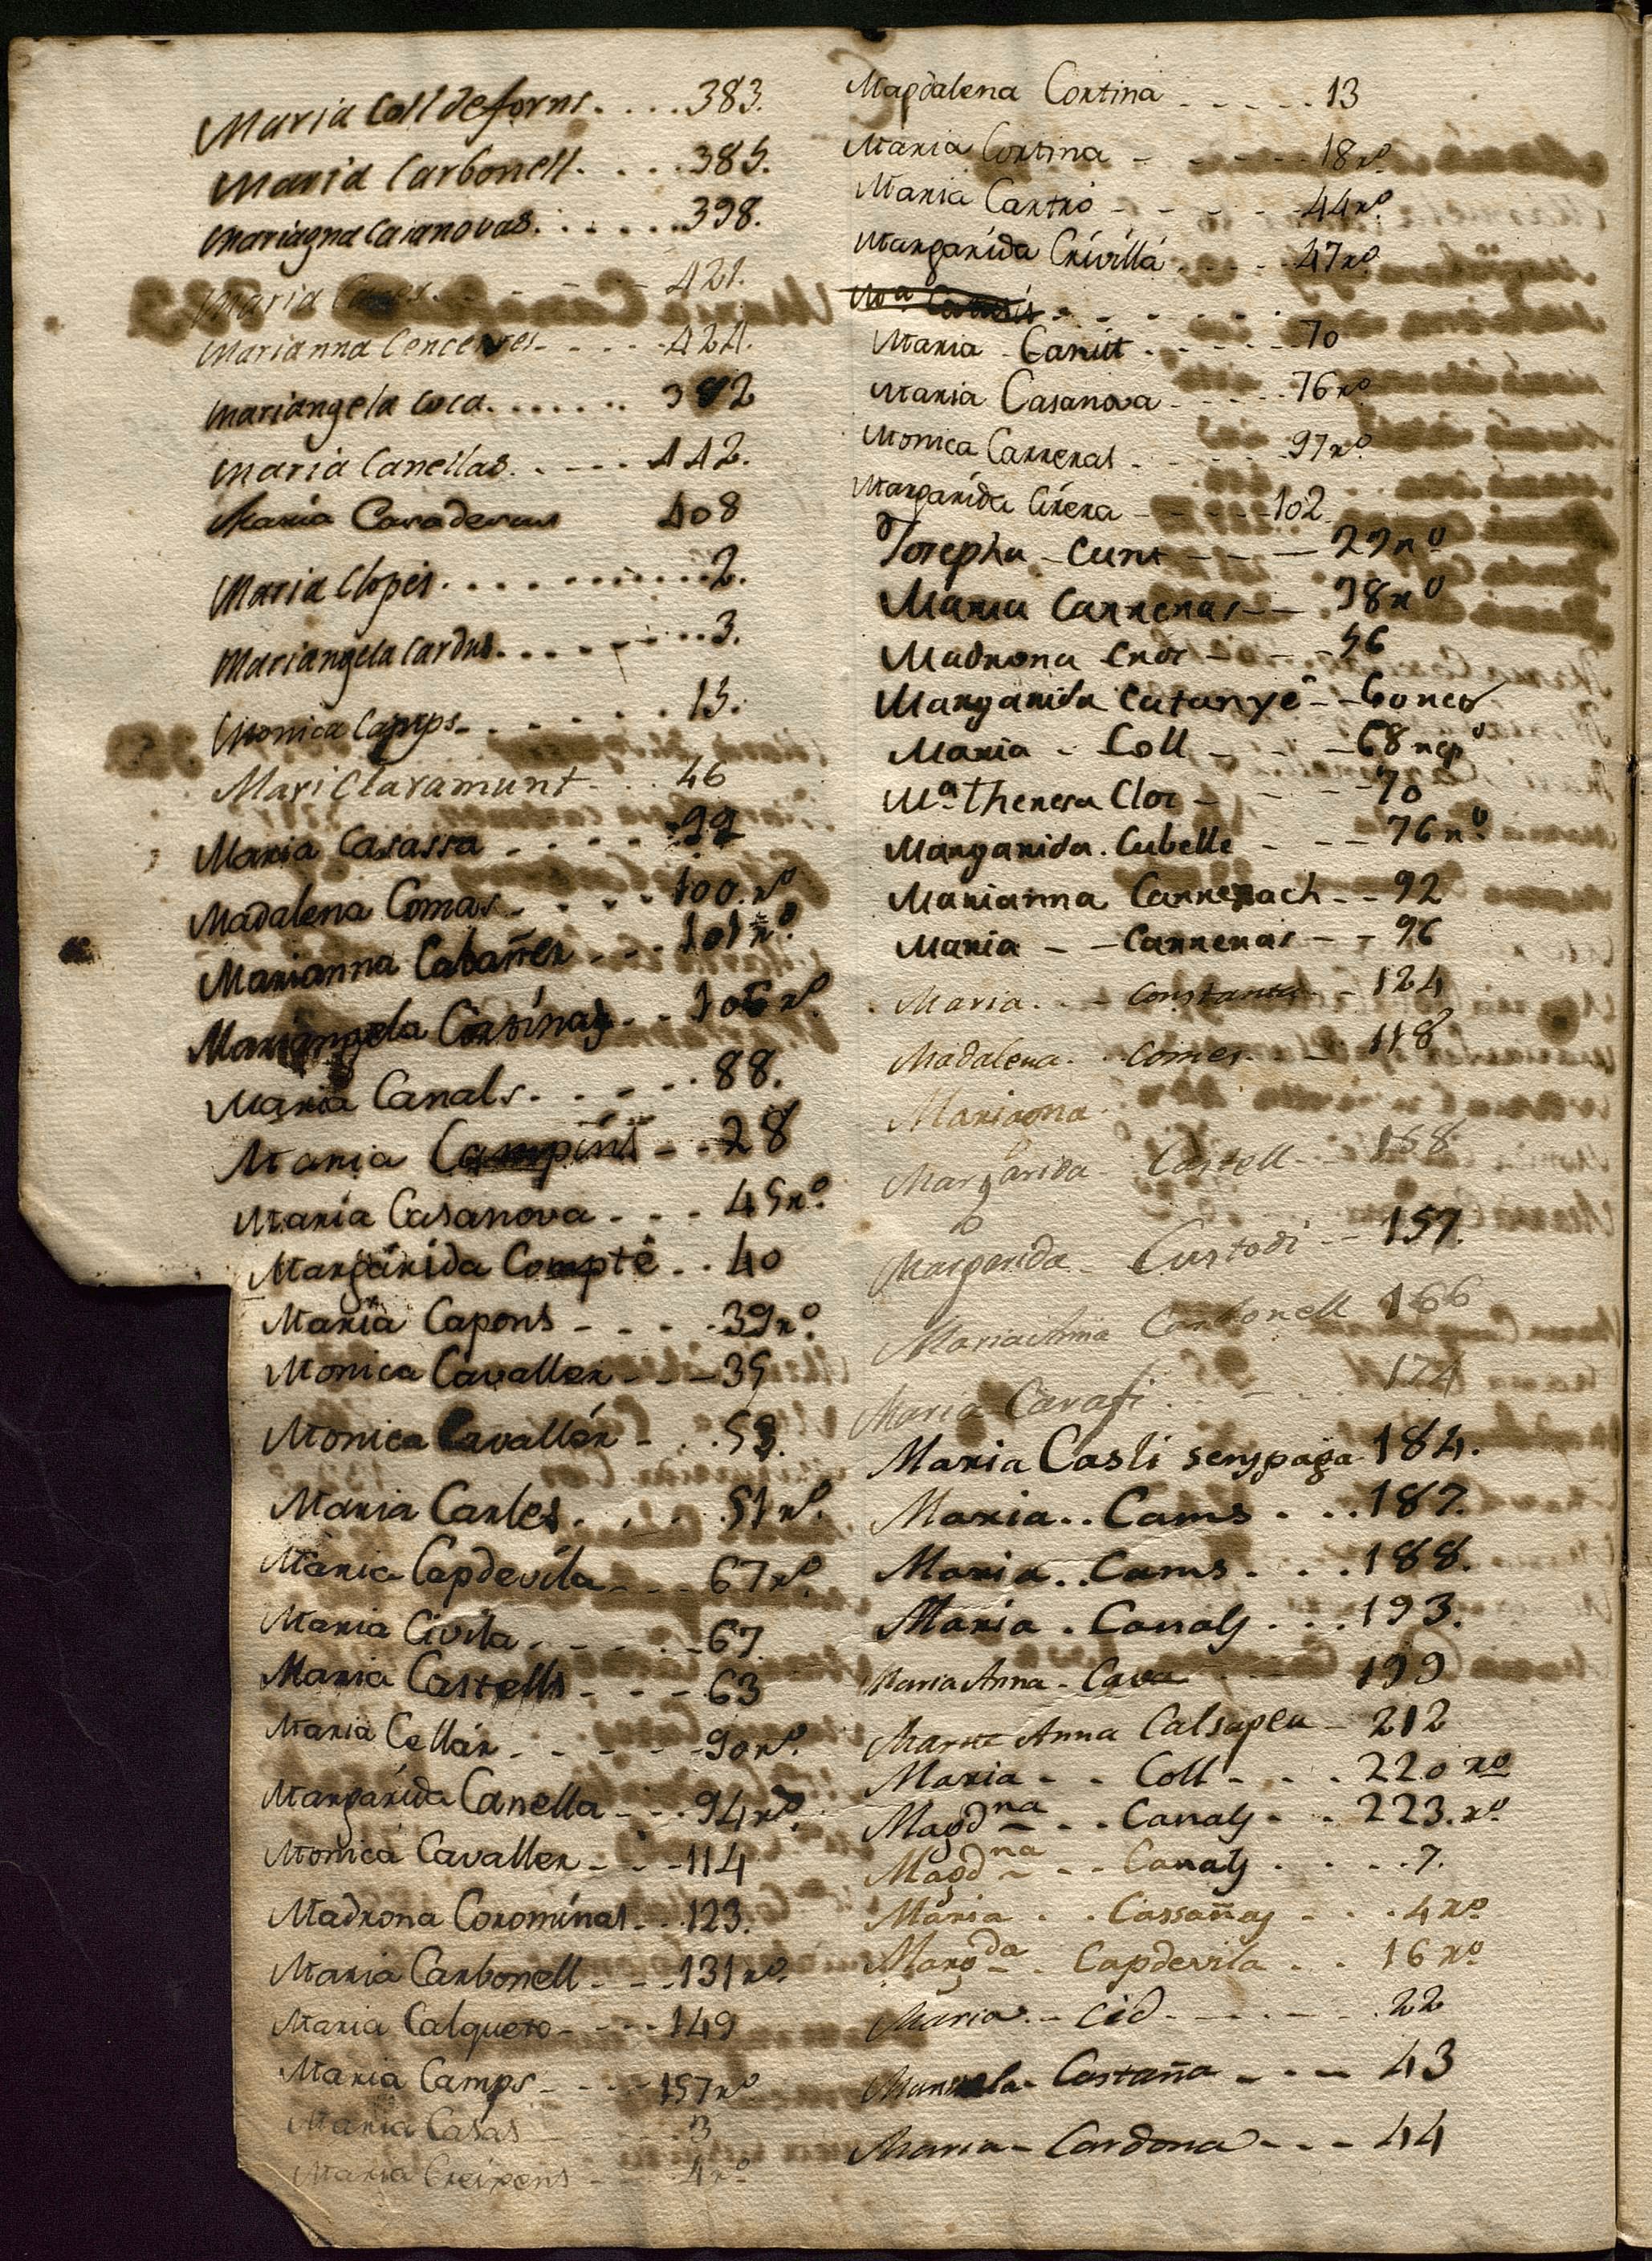 Maria Coll deforns. . . . 383.
Maria Carbonell. . . . 385.
Mariagna Casanovas. . . . . . 398.
Maria . . . 421.
Marianna Cencerres - - - - 424.
Mariangela Coca. . . . . . . 392
Maria Canellas. . - - - 442.
Maria Casadevus 408
Maria Clopes. . . . . . . . . . . 2.
Mariangela Cardus. . . . . . . . . 3.
Monica Camps. - . . . . . 13.
Mari Claramunt - . . 46
Maria Casassa . . - - . 99
Madalena Comas. . . . . 100. ro
Marianna Cabañer - - . 101 ro.
Mariangela - . 106 ro.
Maria Canals. . . - . . 88.
Maria Campins - - 28
Maria Casanova . . . 45 ro.
Margarida Compte . . 40
Maria Capons - - - . 39 ro.
Monica Cavaller - - - 35
Monica Cavallér - . . 53.
Maria Carles. . . . . 51 ro.
Maria Capdevila - - - 67 ro.
Maria Civila - - - . - 67.
Maria Castells - - - 63
Maria Cellár - . - - - 90 ro.
Margarida Canella - . . 94 ro.
Monica Cavaller - . - 114
Madrona Corominas . . . 123.
Maria Carbonell - . - . 131 ro.
Maria Calqueto - . - - 149
Maria Camps - . - - 157 ro
Maria Casas - - 3
Maria Creixens - - 4 ro
Magdalena Cortina - - - . . 13
Maria Cortina - - - - - 18 ro.
Maria Cartró - - - - - 44 ro.
Margarida Crivillá . - - . 47 ro.
Ma
Maria - Canút . - . - - 70
Maria Casanova - . - - - 76 ro.
Monica Carreras - . - - 97 ro.
Margarida Cirera - - - - - 102
Josepha - Cunt - - - 22 ro
Maria Carreras - - 38 ro
Madrona Croc - - - 56
Margarida Catanyé - -
Maria - Coll - - - 68
Ma. Theresa Cloc - - - - 70
Margarida. Cubelle - - - 76 ro
Marianna Carrerach - - 92
Maria - - Carreras - - 96
Maria. . - Constanti - - 124
Madalena. . . Comes. - - 118
Mariagna
Margarida - Castell - - 158
Margarida - Custodi - - 157.
Maria Anna Carbonell 166
Maria Carafi . . . - . . 174
Maria Casli 184.
Maria. . Cams . . . 187.
Maria. . Cams . . . 188.
Maria . Canals . . . 193.
Maria Anna - Cava 199
Maria Anna Calsapeu - 212
Maria - - Coll - . . 220 ro
Magdna - . Canals - . 223. ro.
Magdna - - Canals . . . . 7.
Maria . . Cassañas - . . 4 ro
Margda - . Capdevila . . 16 ro.
Maria - . Cid - . - - - . 22
Manuela - Castaña - . - 43
Maria - Cardona - - - 44